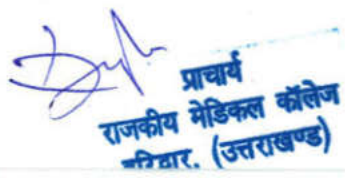 प्राचार्य
राजकीय मेडिकल कॉलेज
हरिद्वार, (उत्तराखण्ड)